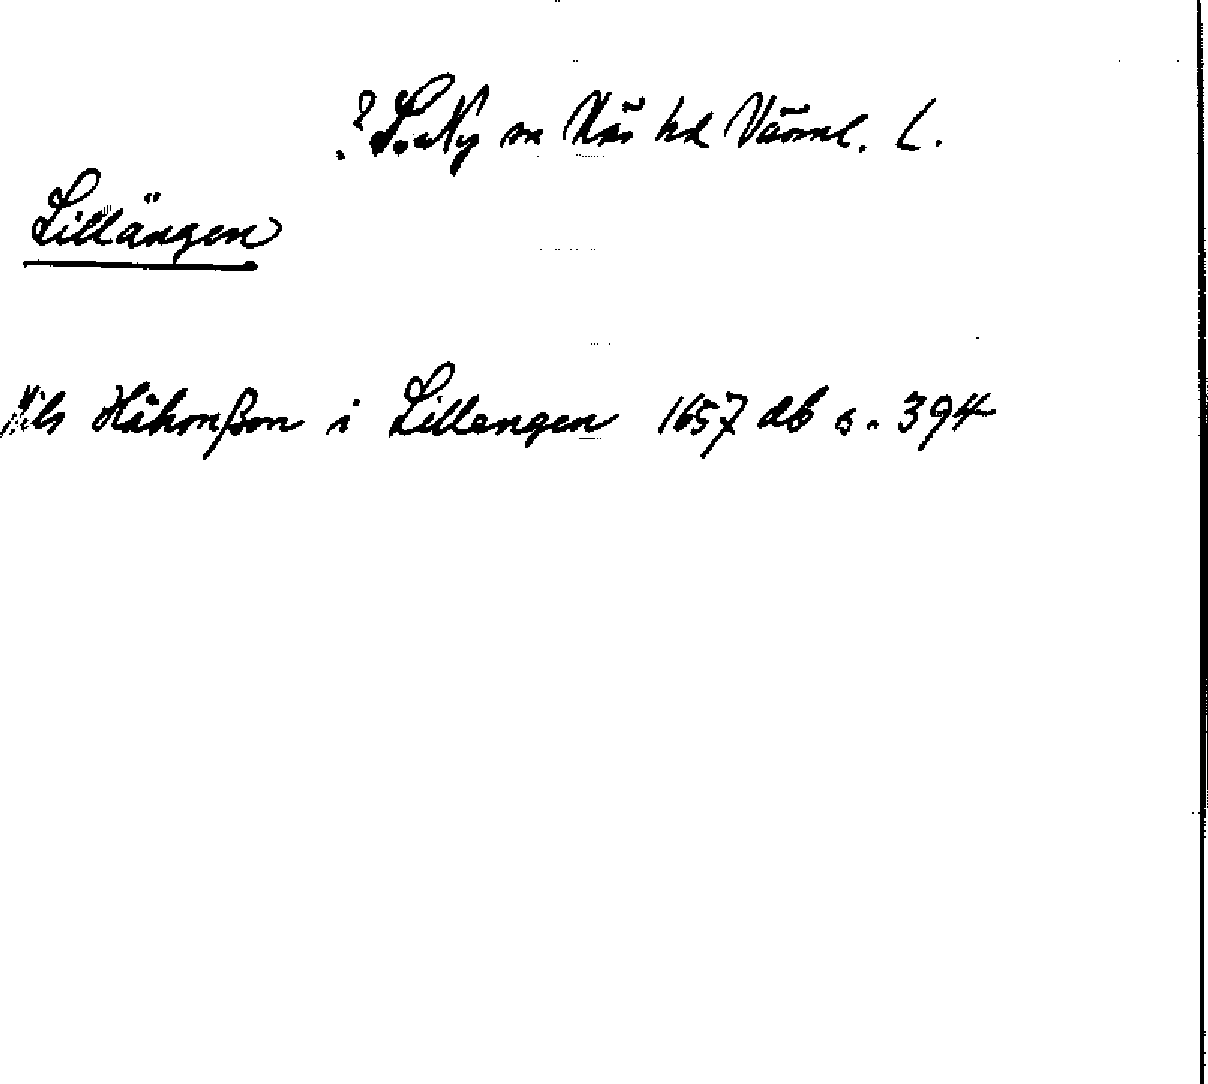 ? L. Ny sn Näs hd Värml. L.
Lillängen
Nils Håkonßon i Lillengen 1657 db s. 394